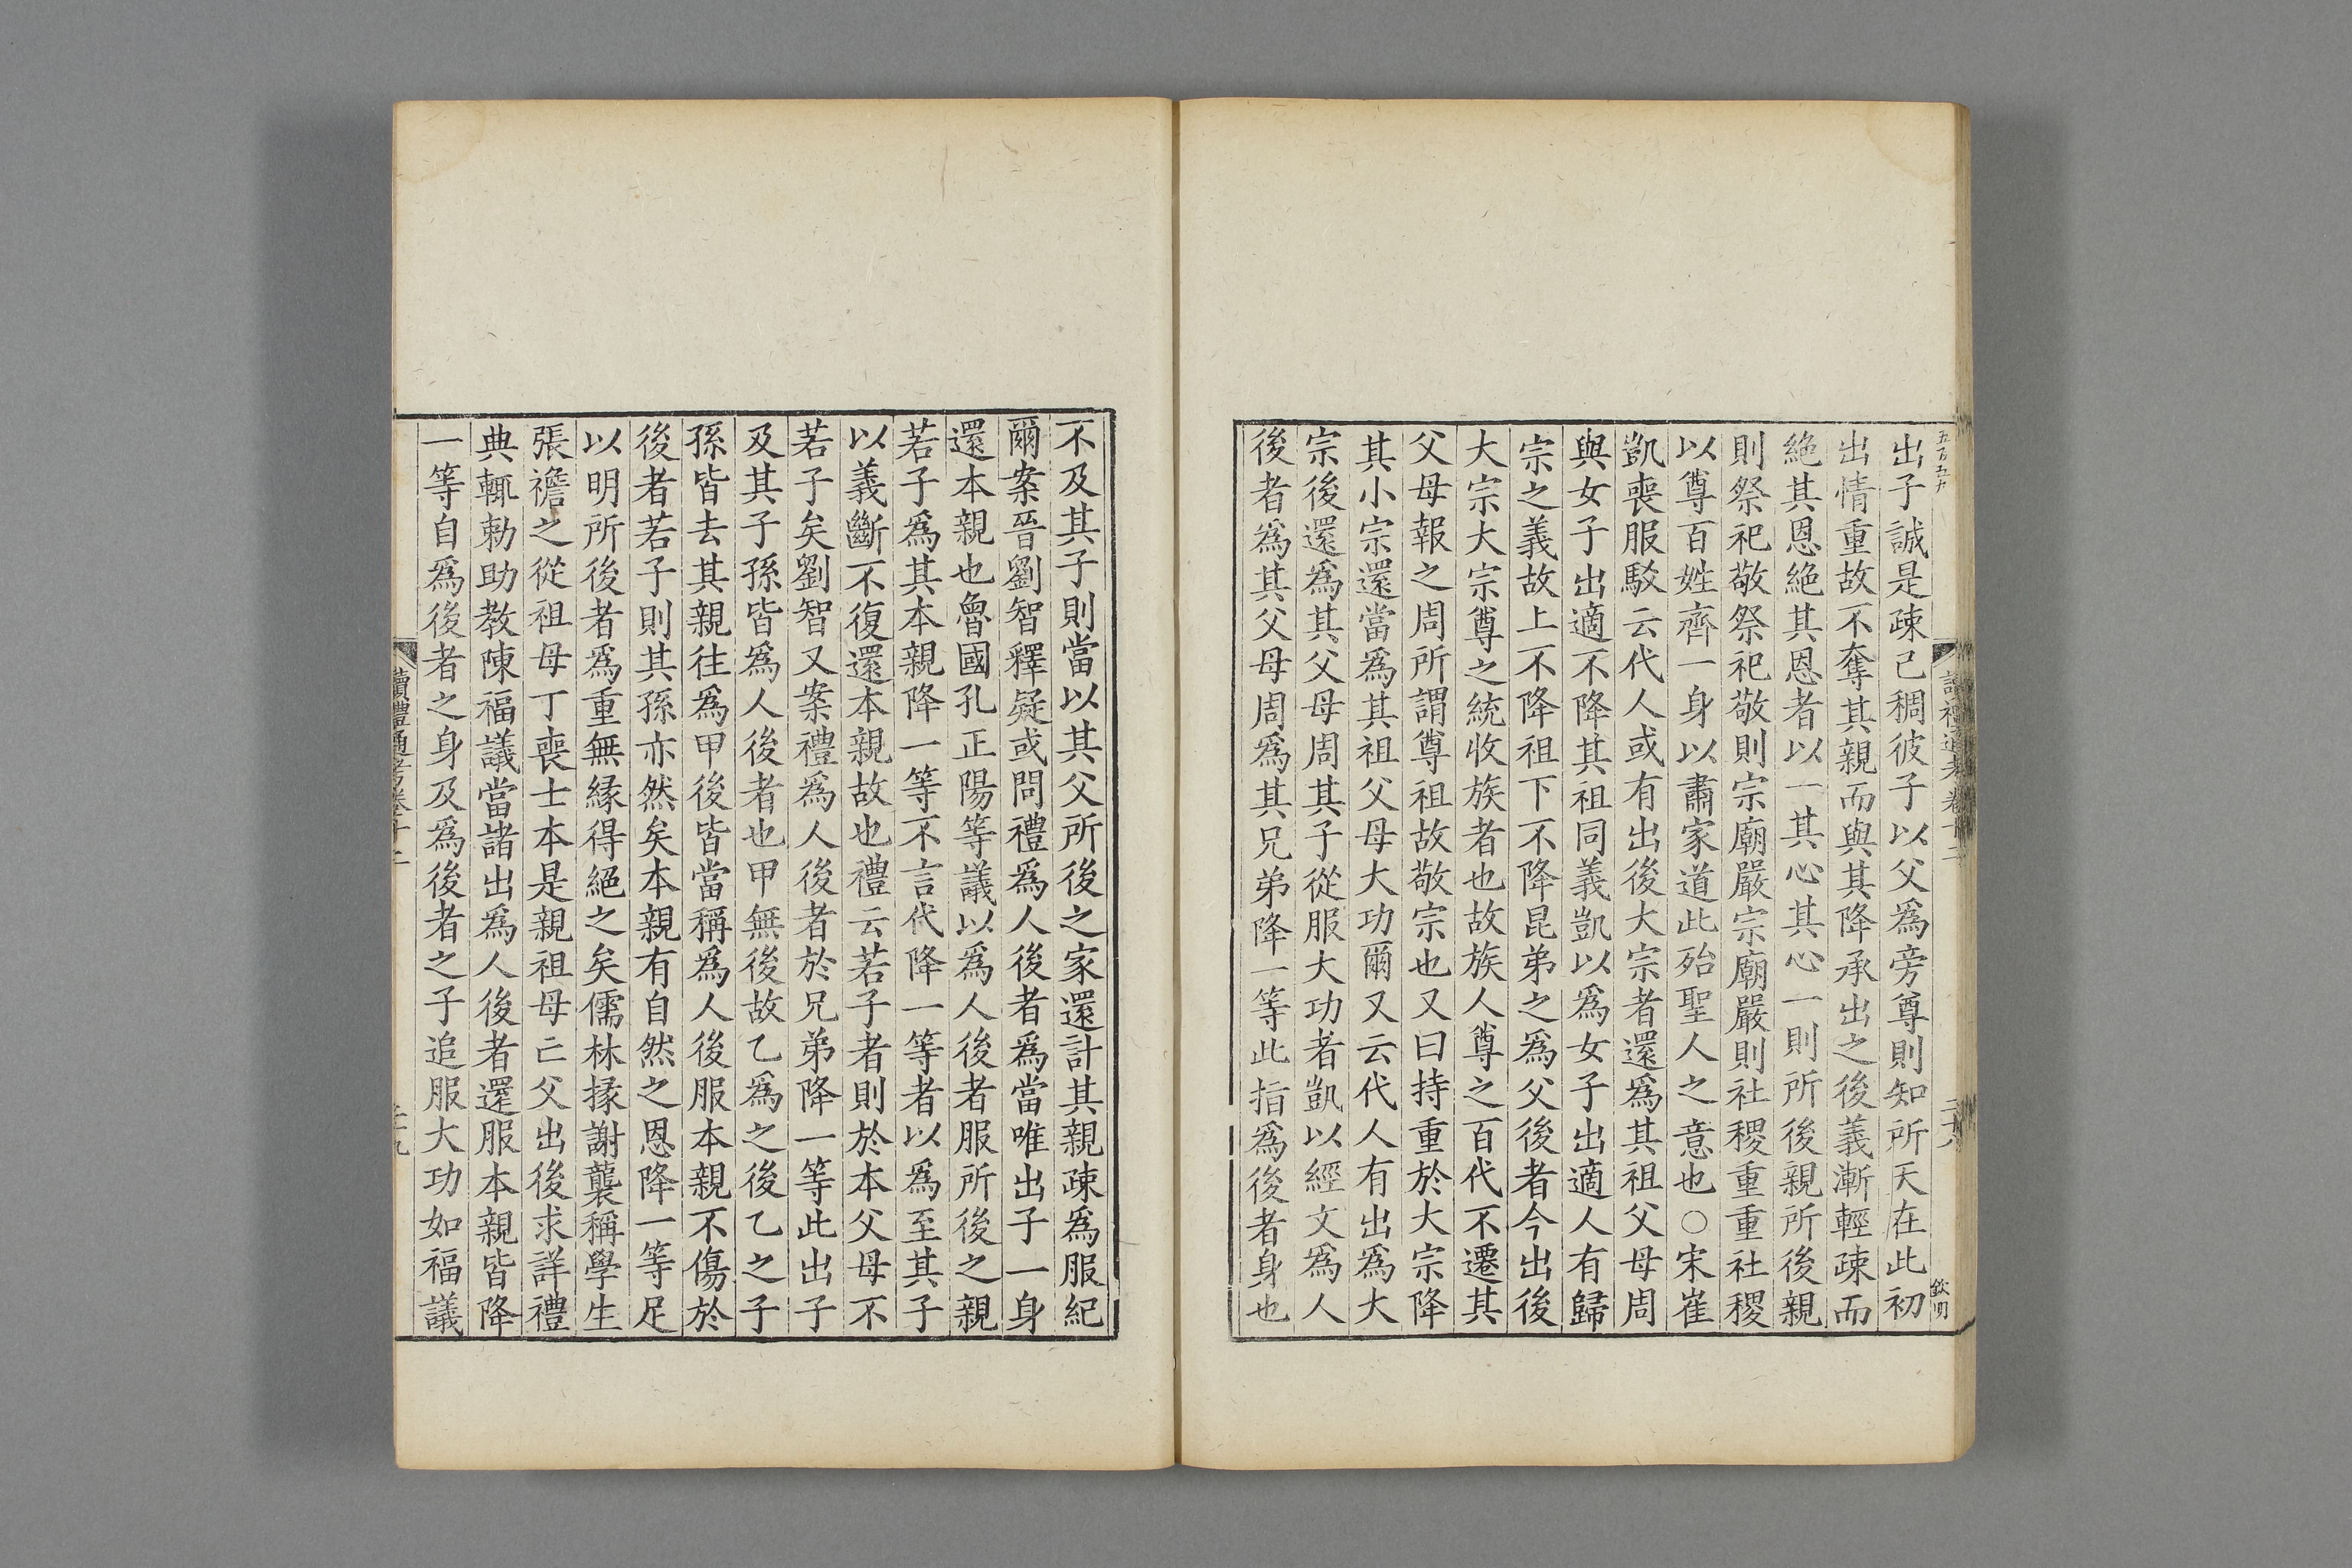 五百五九
讀禮通考卷十二
二十八
欽明
出子誠是疎己稠彼子以父爲旁尊則知所天在此初
出情重故不奪其親而與其降承出之後義漸輕疎而
絶其恩絶其恩者以一其心其心一則所後親所後親
則祭祀敬祭祀敬則宗廟嚴宗廟嚴則社稷重重社稷
以尊百姓齊一身以肅家道此殆聖人之意也○宋崔
凱喪服駁云代人或有出後大宗者還爲其祖父母周
與女子出適不降其祖同義凱以爲女子出適人有歸
宗之義故上不降祖下不降昆弟之爲父後者今出後
大宗大宗尊之統收族者也故族人尊之百代不遷其
父母報之周所謂尊祖故敬宗也又曰持重於大宗降
其小宗還當爲其祖父母大功爾又云代人有出爲大
宗後還爲其父母周其子從服大功者凱以經文爲人
後者爲其父母周爲其兄弟降一等此指爲後者身也
不及其子則當以其父所後之家還計其親疎爲服紀
爾案晉劉智釋疑或問禮爲人後者爲當唯出子一身
還本親也魯國孔正陽等議以爲人後者服所後之親
若子爲其本親降一等不言代降一等者以爲至其子
以義斷不復還本親故也禮云若子者則於本父母不
若子矣劉智又案禮爲人後者於兄弟降一等此出子
及其子孫皆爲人後者也甲無後故乙爲之後乙之子
孫皆去其親往爲甲後皆當稱爲人後服本親不傷於
後者若子則其孫亦然矣本親有自然之恩降一等足
以明所後者爲重無緣得絶之矣儒林掾謝襲稱學生
張襜之從祖母丁喪士本是親祖母亡父出後求詳禮
典輒勅助教陳福議當諸出爲人後者還服本親皆降
一等自爲後者之身及爲後者之子追服大功如福議
讀禮通考卷十二
二十九